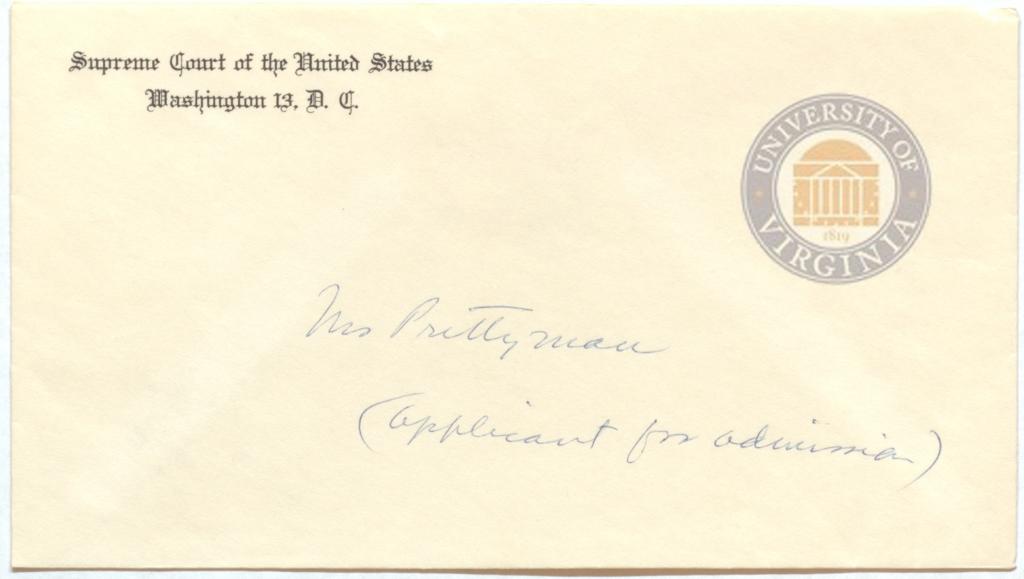 Supreme Court of the United States
Washington 13, D. C.
UNIVERSITY OF VIRGINIA
1819
Mrs Prettyman
(applicant for admission)